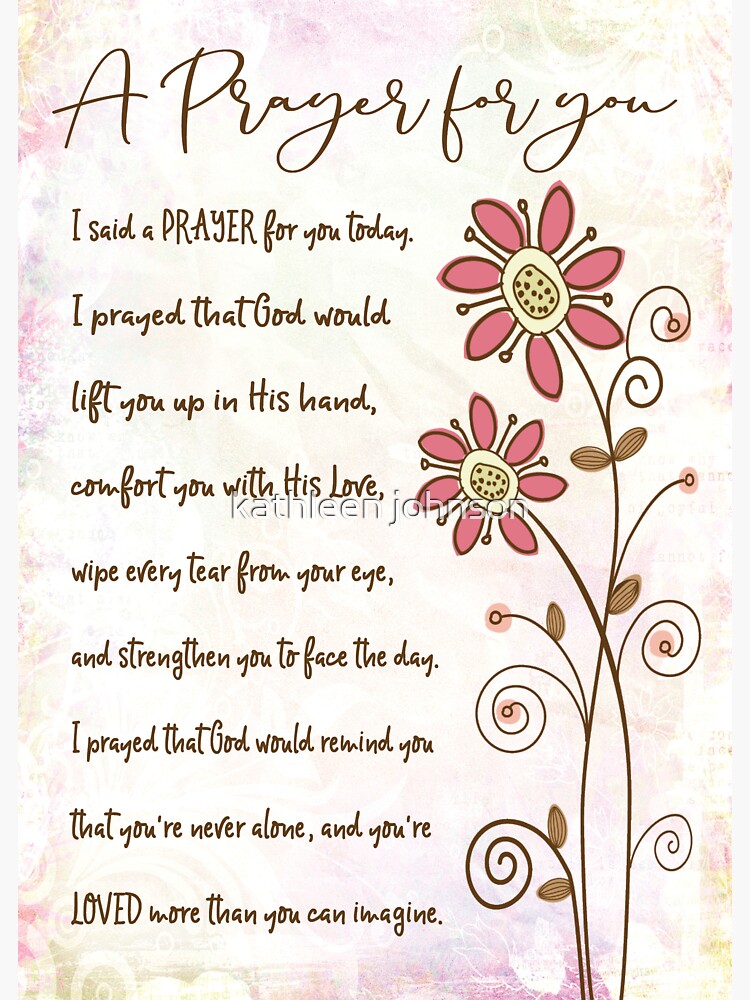 A Prayer for you
I said a PRAYER for you today.
I prayed that God would
lift you up in His hand,
comfort you with His Love,
kathleen johnson
wipe every tear from your eye,
and strengthen you to face the day.
I prayed that God would remind you
that you're never alone, and you're
LOVED more than you can imagine.